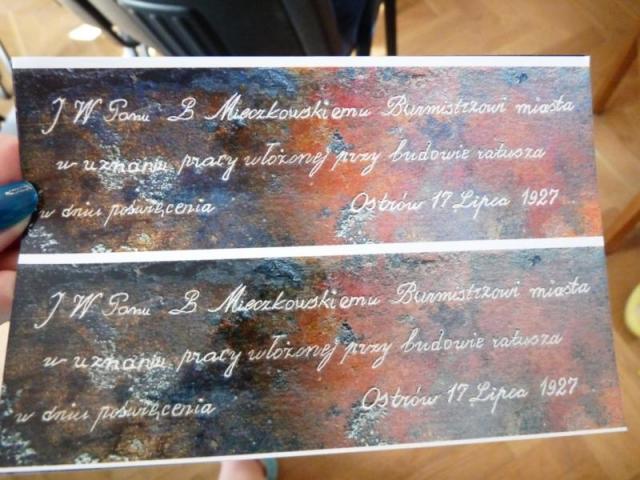 J W Panu B Mieczkowskiemu Burmistrzowi miasta
w uznaniu pracy włożonej przy budowie ratusza
w dniu poświęcenia Ostrów 17 Lipca 1927
J W Panu B Mieczkowskiemu Burmistrzowi miasta
w uznaniu pracy włożonej przy budowie ratusza
w dniu poświęcenia Ostrów 17 Lipca 1927